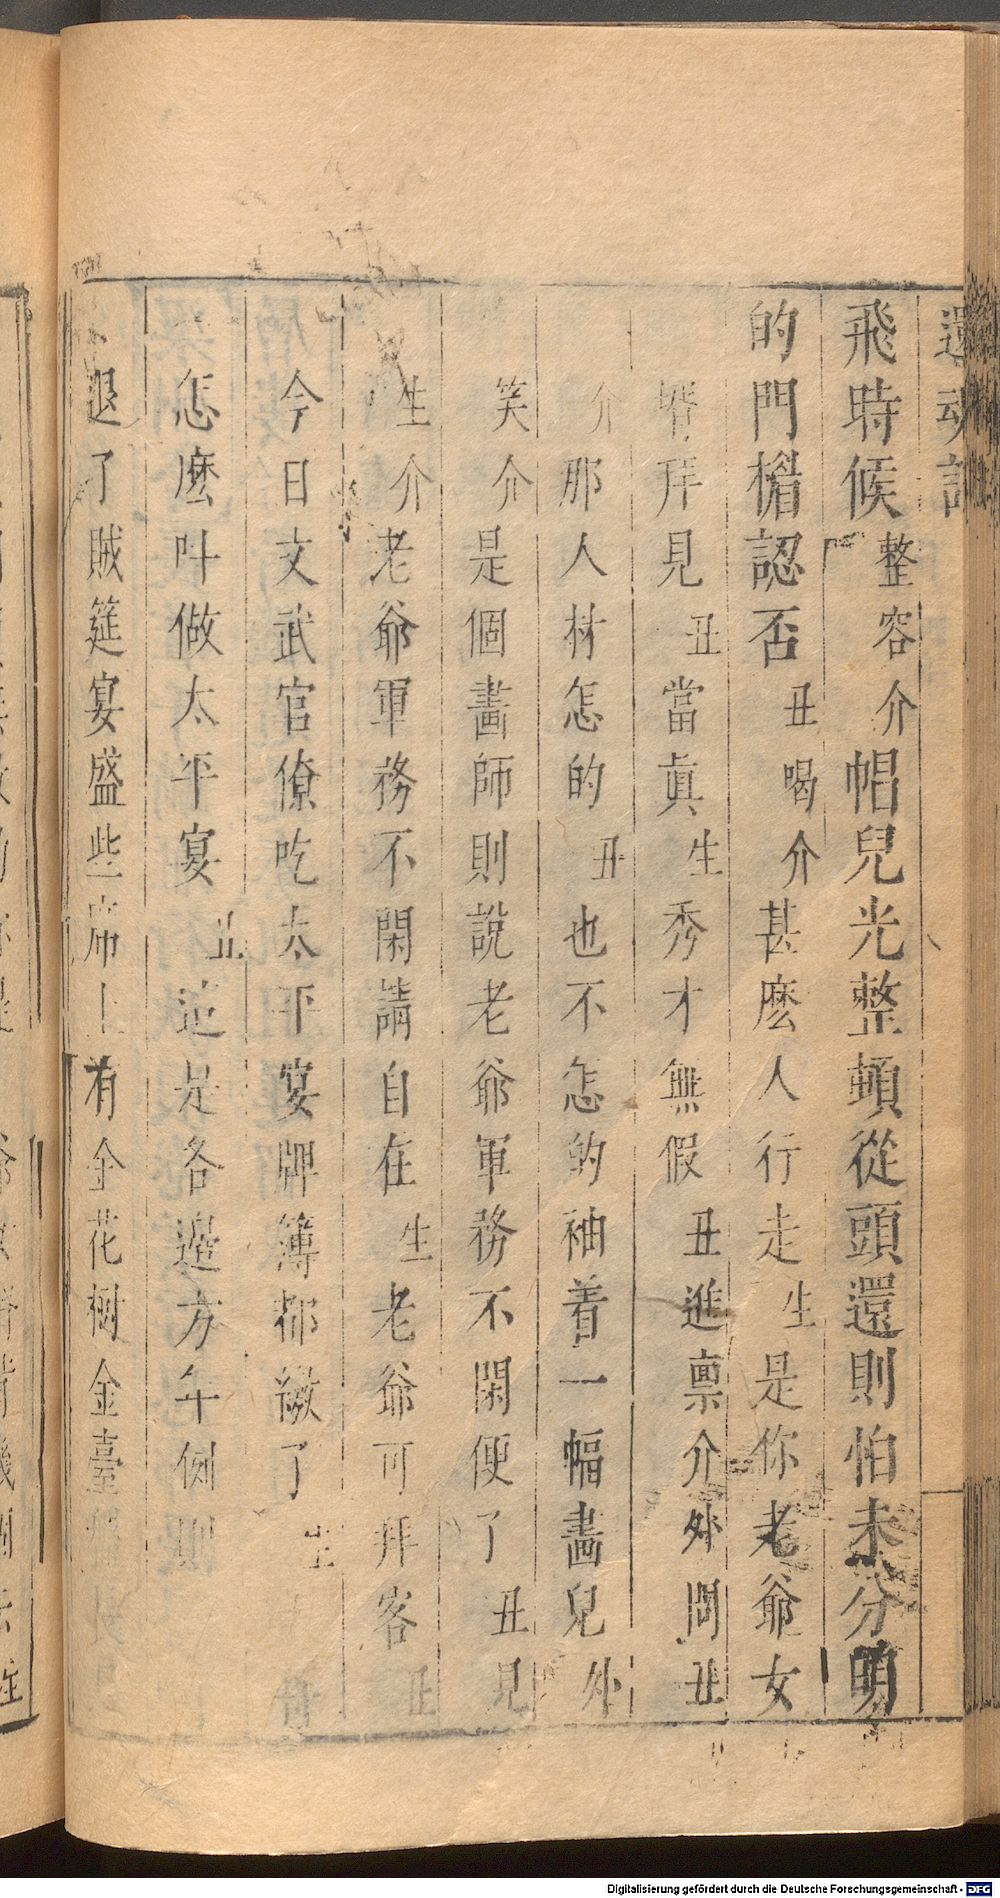 還魂記
飛時候整容介帽兒光整頓從頭還則怕未分明
的門楣認否丑喝介甚麼人行走生是你老爺女
壻拜見丑當真生秀才無假丑進禀介外問丑
介那人材怎的丑也不怎的袖着一幅畫兒外
笑介是個畫師則說老爺軍務不閑便了丑見
生介老爺軍務不閑請自在生老爺可拜客丑
今日文武官僚吃太平宴牌簿都繳了生
怎麽叶做太平宴丑這是各邊方年例則
退了賊筵宴盛些席上有金花樹金臺
Digitalisierung gefördert durch die Deutsche Forschungsgemeinschaft - DFG